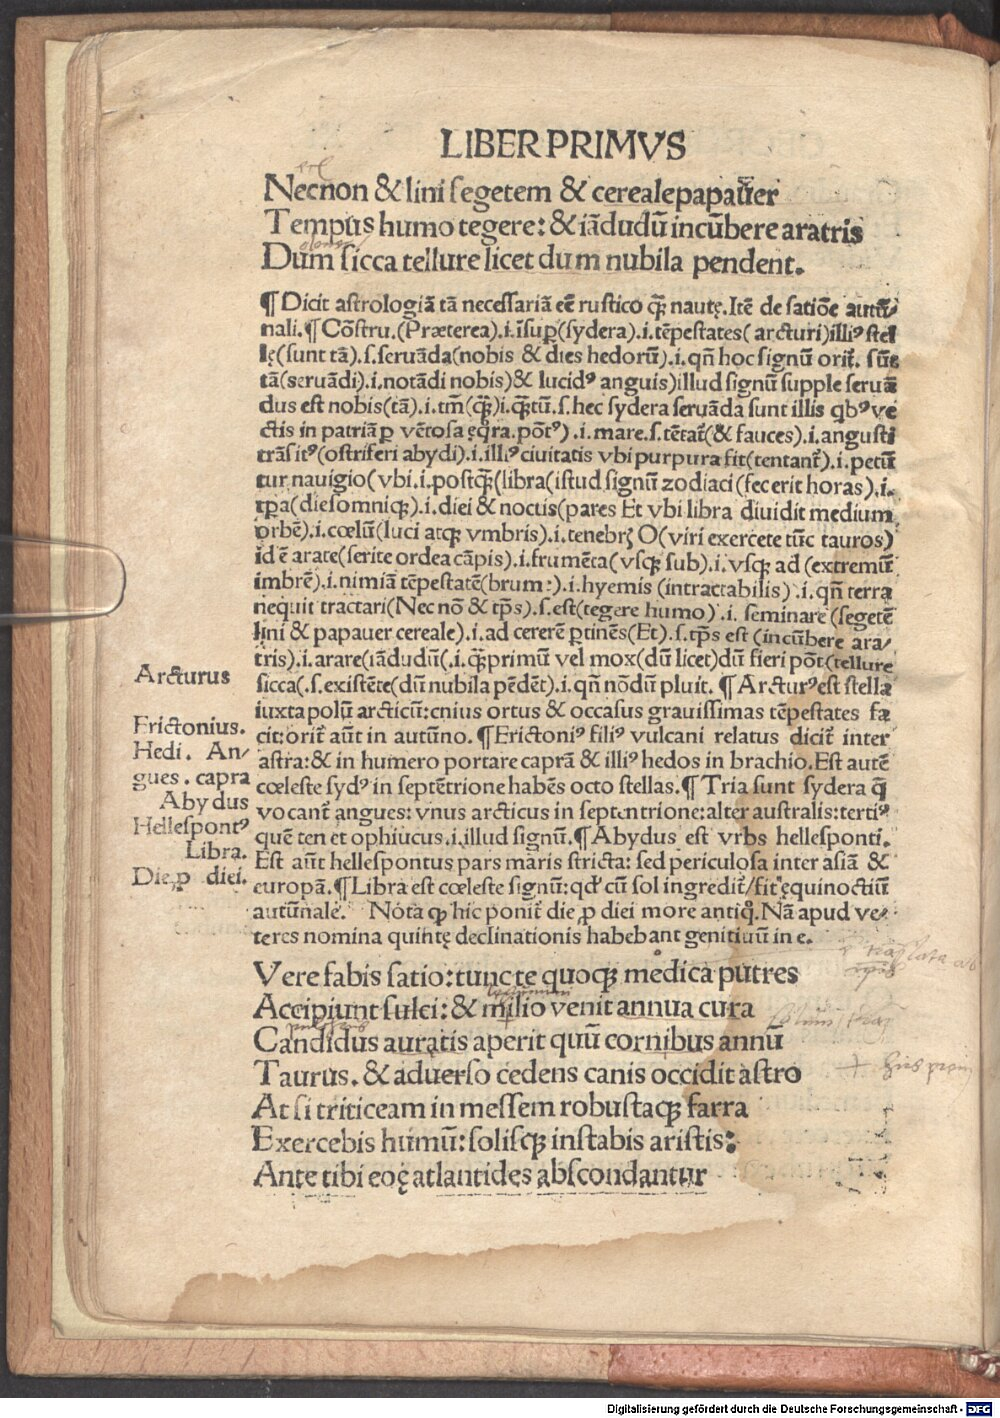 LIBER PRIMVS
Necnon & lini segetem & cereale papaũer
Tempus humo tegere: & iãdudũ incũbere aratris
Dum sicca tellure licet dum nubila pendent.
¶ Dicit astrologiã tã necessariã eẽ rustico q̃ȝ nautę. Itẽ de satiõe autũ/
nali. ¶ Cõstru. (Præterea).i.ĩsuꝑ(sydera).i.tẽpestates( arcturi)illiꝰ stel
lę(sunt tã).s.seruãda(nobis & dies hedorũ).i.qñ hoc signũ orit̃. sũt
tã(seruãdi).i.notãdi nobis)& lucidꝰ anguis)illud signũ supple seruã
dus est nobis(tã).i.tm̃(q̃ȝ)i.q̃ȝtũ.s.hec sydera seruãda sunt illis qbꝰ ve
ctis in patriã ꝑ vẽtosa ęq̃ra.põtꝰ).i.mare.s.tẽtat̃(& fauces).i.angusti
trãsitꝰ(ostriferi abydi).i.illiꝰ ciuitatis vbi purpura fit(tentant̃).i.petũ
tur nauigio(vbi.i.postq̃ȝ(libra(istud signũ zodiaci(fecerit horas).i.
tꝑa(die somniqȝ).i.diei & noctis(pares Et vbi libra diuidit medium
orbẽ).i.cœlũ(luci atqȝ vmbris).i.tenebrꝭ O(viri exercete tũc tauros)
id ẽ arate(serite ordea cãpis).i.frumẽta(vsqȝ sub).i.vsqȝ ad (extremũ
imbrẽ).i.nimiã tẽpestatẽ(brumę).i.hyemis (intractabilis) .i.qñ terra
nequit tractari(Nec nõ & tp̃s).s.est(tegere humo) .i. seminare (segetẽ
lini & papauer cereale).i.ad cererẽ ꝑtinẽs(Et).s.tp̃s est (incũbere ara/
tris).i.arare(iãdudũ(.i.q̃ȝprimũ vel mox(dũ licet)dũ fieri põt(tellure
sicca(.s.existẽte(dũ nubila pẽdẽt).i.qñ nõdũ pluit. ¶ Arcturꝰ est stella
iuxta polũ arcticũ:cuius ortus & occasus grauissimas tẽpestates fa
cit:orit̃ aũt in autũno. ¶ Erictoniꝰ filiꝰ vulcani relatus dicit̃ inter
astra:& in humero portare caprã & illiꝰ hedos in brachio. Est autẽ
cœleste sydꝰ in septẽtrione habẽs octo stellas. ¶ Tria sunt sydera q̃
vocant̃ angues: vnus arcticus in septentrione:alter australis:tertiꝰ
quẽ tenet ophiucus.i.illud signũ. ¶ Abydus est vrbs hellesponti.
Est aũt hellespontus pars maris stricta: sed periculosa inter asiã &
europã. ¶ Libra est cœleste signũ:qd̃ cũ sol ingredit̃/fit ęquinoctiũ
autũnale. Nota qȝ hic ponit̃ die ꝓ diei more antiq̃ꝝ. Nã apud ve/
teres nomina quintę declinationis habebant genitiuũ in e.
Arcturus
Erictonius.
Hedi. An/
gues. capra
Abydus
Hellespontꝰ
Libra.
Die ꝓ diei.
Vere fabis satio: tunc te quoqȝ medica putres
Accipiunt sulci: & milio venit annua cura
Candidus auratis aperit quũ cornibus annũ
Taurus. & aduerso cedens canis occidit astro
At si triticeam in messem robustaqȝ farra
Exercebis humũ: solisqȝ instabis aristis:
Ante tibi eoę atlantides abscondantur
Digitalisierung gefördert durch die Deutsche Forschungsgemeinschaft - DFG